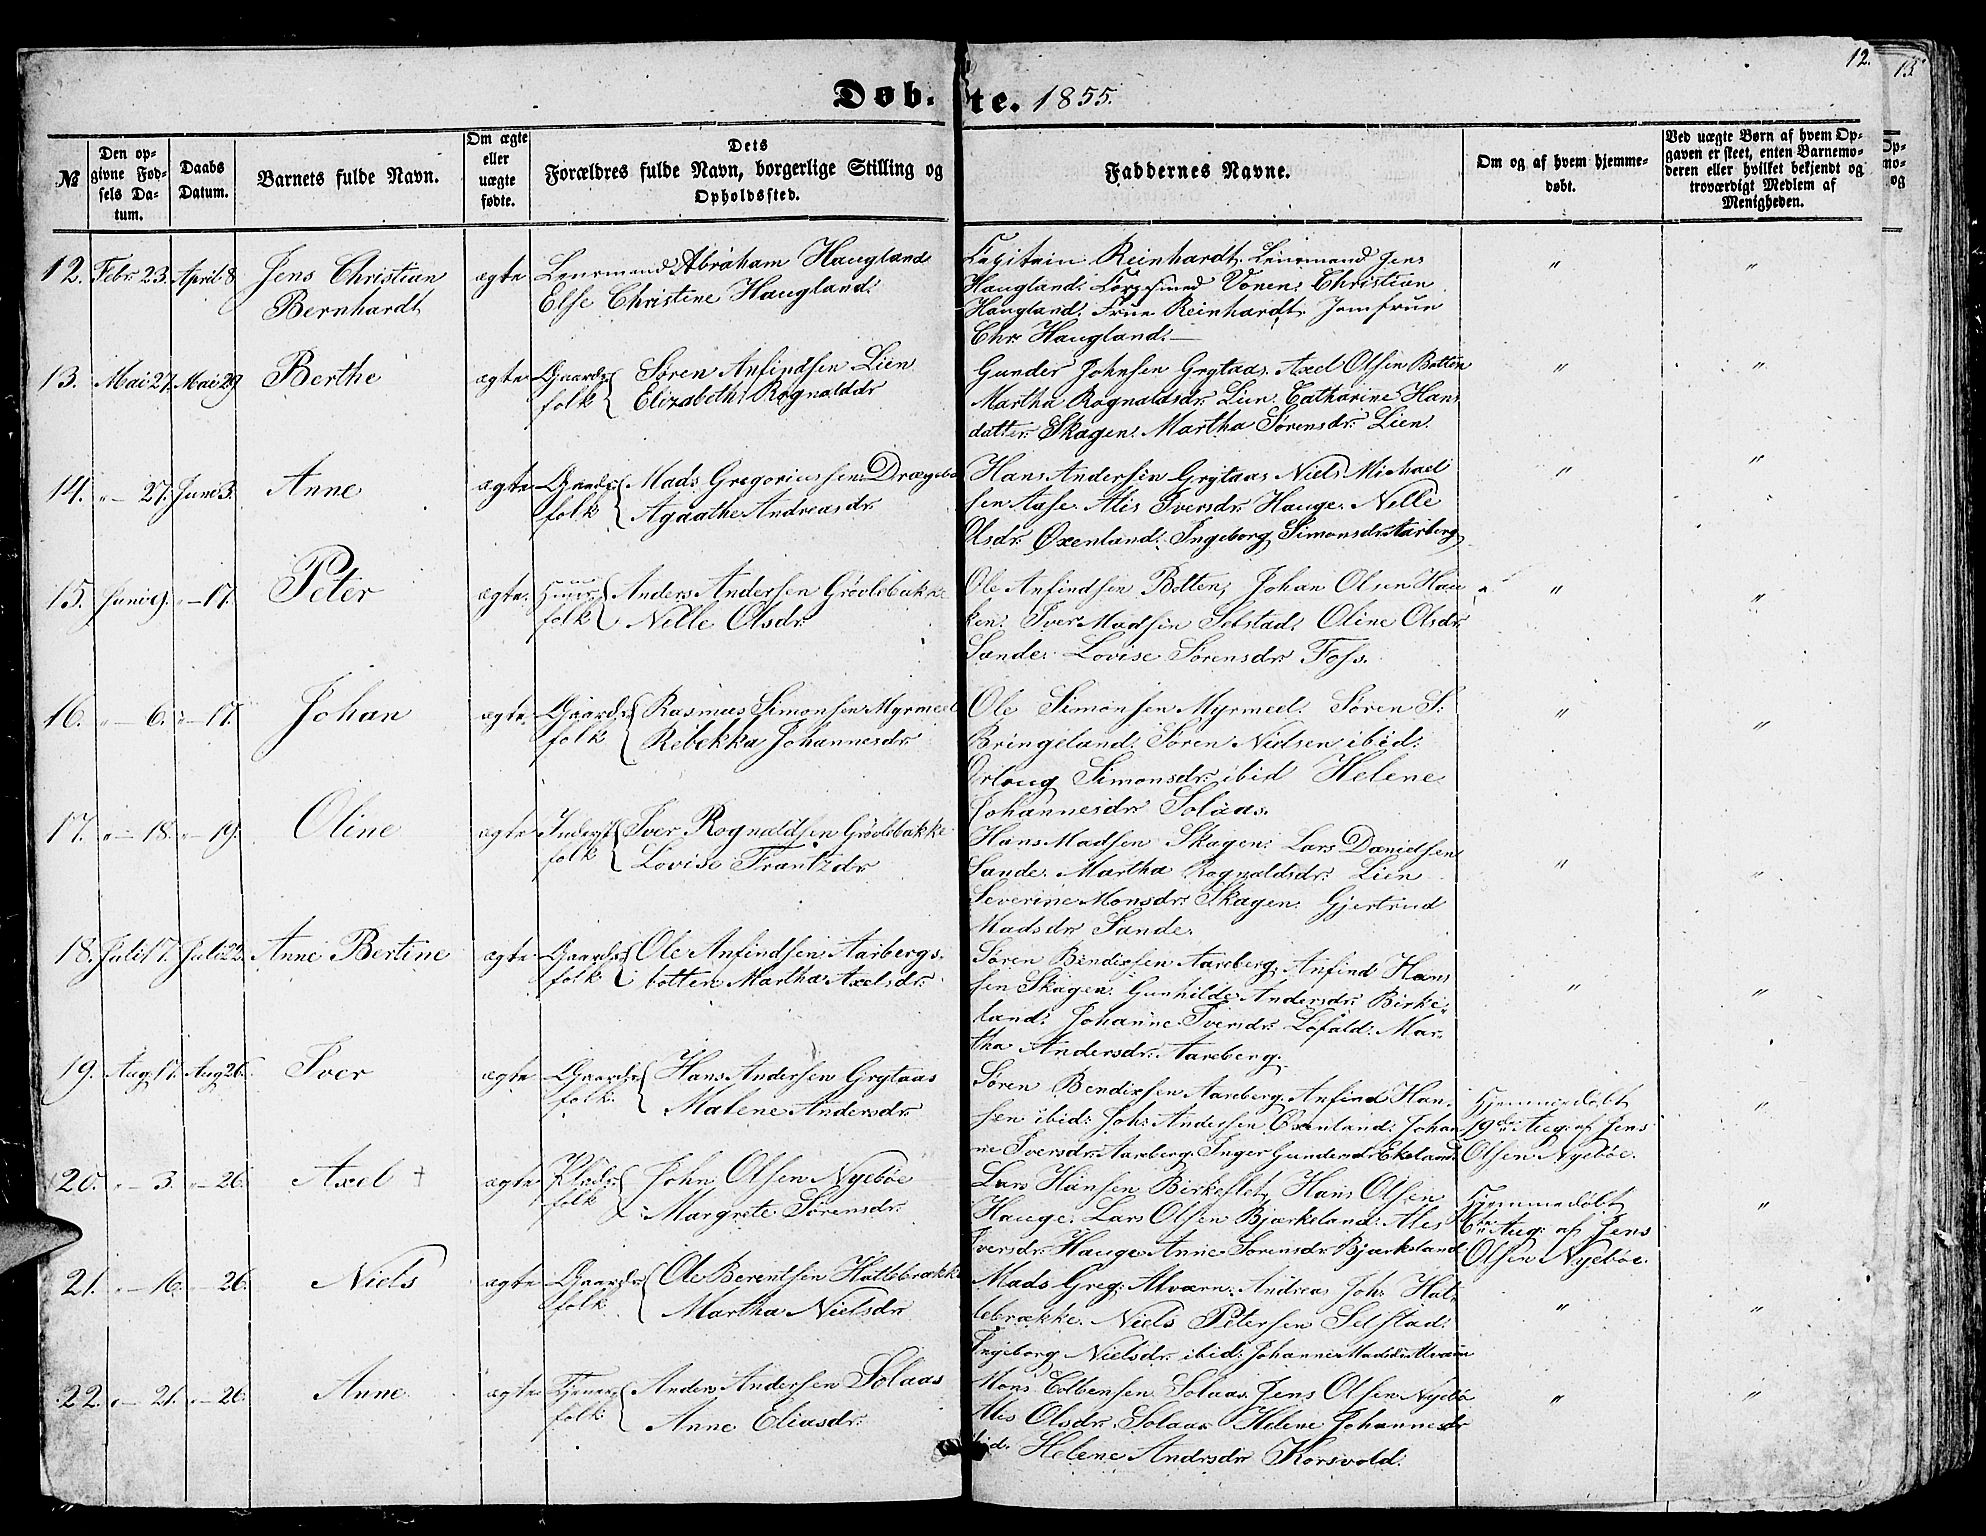 12. 15
Døbte. 1855.
№
Den opgivne Fødsels Datum.
Daabs Datum.
Barnets fulde Navn.
Om ægte eller uægte fødte.
Dets Forældres fulde Navn, borgerlige Stilling og Opholdssted.
Faddernes Navne.
Om og af hvem hjemmedøbt.
Ved uægte Børn af hvem Opgaven er skeet, enten Barnemoderen eller hvilket bekjendt og troværdigt Medlem af Menigheden.
12. Febr. 23. April 8 Jens Christian ægte Lensmand Abraham Haugland Capitain Reinhardt. Lensmand Jens " "
Bernhardt Else Christine Haugland. Haugland. Vonen. Christian
Haugland. Frue Reinhardt. Jomfrue
Chr. Haugland.—
13. Mai 27. Mai 29 Berthe ægte Gaard- Søren Anfindsen Lien Gunder Johnsen Grytaas. Axel Olsen Botten " "
folk Elizabeth Rognaldsdr Martha Rognaldsdr. Lien. Catharine Hans
datter Skagen. Martha Sørensdr. Lien.
14. "— 27. Juni 3. Anne ægte Gaard- Mads Gregoriussen Drægebø Hans Andersen Grytaas Niels Michael " "
folk Agaathe Andreasdr. sen Aase. Ales Iversdr. Hauge. Nelle
Olsdr. Oxenland. Ingeborg Simonsdr. Aarberg
15. Juni 9. "—17. Peter ægte. Huus- Anders Andersen Grøvlebakke Ole Anfindsen Botten, Johan Olsen Hau " "
folk Nelle Olsdr. ken. Iver Madsen Selstad. Oline Olsdr.
Sande. Lovise Sørensdr. Foss.
16. "— 6. "—17. Johan ægte. Gaard- Rasmus Simonsen Myrmeel Ole Simonsen Myrmeel. Søren S. " "
folk Rebekka Johannesdr. Bringeland. Søren Nielsen ibid.
Simonsdr. ibid Helene
Johannesdr. Solaas.
17. "— 18. "—19. Oline ægte Inderst- Iver Rognaldsen Grøvlebakke Hans Madsen Skagen. Lars Danielsen " "
folk Lovise Frantzdr. Sande. Martha Rognaldsdr. Lien
Severine Monsdr. Skagen. Gjertrud
Madsdr. Sande.
18. Juli 17. Juli 22. Anne Bertine ægte Gaards- Ole Anfindsen Aarbergs- Søren Bendixsen Aareberg. Anfind Han " "
folk botten Martha Axelsdr. sen Skagen. Gunhilde Andersdr. Birke-
land. Johanne Iversdr. Løfald. Mar-
tha Andersdr. Aareberg.
19. Aug. 17. Aug. 26. Iver ægte Gaard- Hans Andersen Grytaas Søren Bendixsen Aareberg. Anfind Han- Hjemmedøbt "
folk. Malene Andersdr. sen ibid. Joh. Andersen Oxenland. Johan 19de Aug. af Jens
ne Iversdr. Aareberg. Inger Gundersdr. Ekeland. Olsen Nyebøe.
20. "— 3. "—26. Axel + ægte Plads- John Olsen Nyebøe Lars Hansen Birkeflet, Hans Olsen Hjemmedøbt "
folk Margrete Sørensdr. Hauge. Lars Olsen Bjærkeland. Ales 6te Aug. af Jens
Iversdr. Hauge. Anne Sørensdr. Bjærkeland Olsen Nyebøe.
21. "— 16. "—26. Niels ægte Gaard- Ole Berentsen Hatlebrække Mads Greg. Alværn. Andreas Joh. Hat- " "
folk Martha Nielsdr. lebrække. Niels Petersen Selstad.
Ingeborg Nielsdr. ibid. Johanne Madsdr. Alværn
22. "— 21. "—26. Anne ægte Tjener- Anders Andersen Solaas Mons Colbensen Solaas. Jens Olsen Nyebø " "
folk Anne Eliasdr. Ales Olsdr. Solaas Helene Johannesdr
ibid. Helene Andrsdr Korsvold.